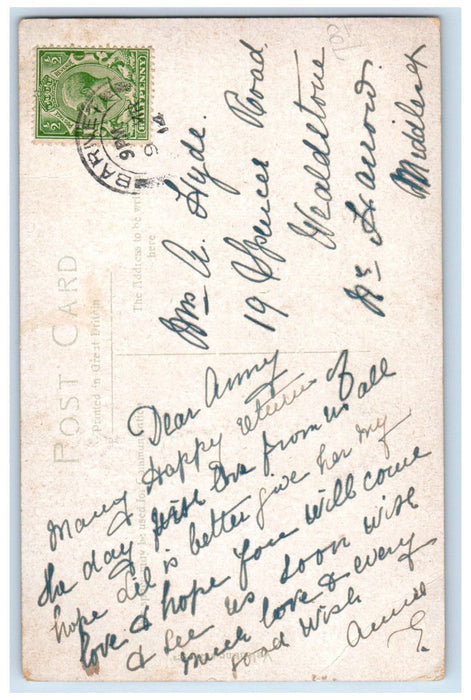 ½ ½
HALF PENNY
BARNET
9 PM
14
POST CARD
Printed in Great Britain
The Address to be written
here
Mrs A. Hyde.
19 Spencer Road.
Wealdstone
Nr Harrow.
Middlesex
Dear Anny
Many Happy returns of
the day with love from us all
hope Lil is better give her my
love & hope you will come
& see us soon with
much love & every
good wish
Annie
E.